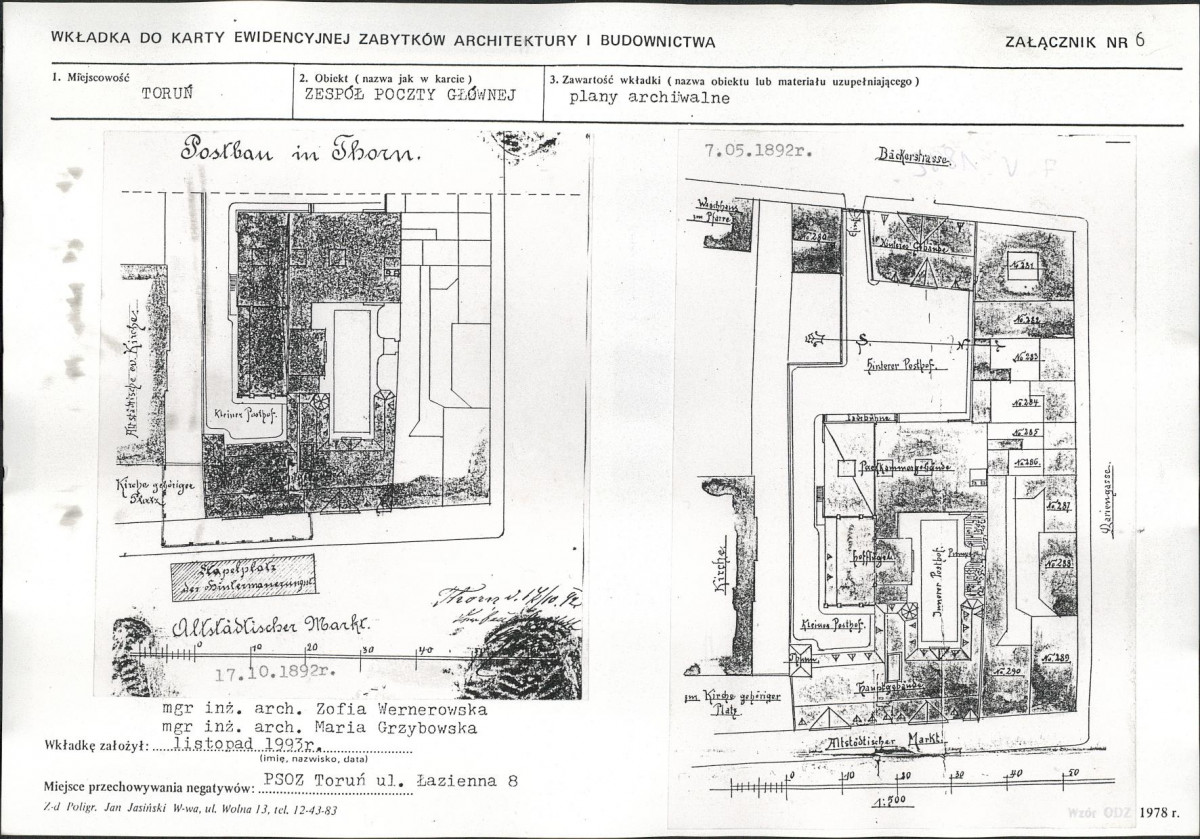 WKŁADKA DO KARTY EWIDENCYJNEJ ZABYTKÓW ARCHITEKTURY I BUDOWNICTWA
ZAŁĄCZNIK NR 6
1. Miejscowość
TORUŃ
2. Obiekt ( nazwa jak w karcie )
ZESPÓŁ POCZTY GŁÓWNEJ
3. Zawartość wkładki ( nazwa obiektu lub materiału uzupełniającego )
plany archiwalne
Postbau in Thorn.
Altstädtische ev. Kirche.
Kleiner Posthof.
Kirche gehöriger
Platz
Stapelplatz
der Hintermauerungsst.
Thorn d. 17/10. 92
Altstädtischer Markt.
0 10 20 30 40
17.10.1892r.
7.05.1892r.
Bäckerstrasse.
Waschhaus
zur Pfarre
No 280
Hinteres Gebäude
No 281
No 282
S.
N.
Hinterer Posthof.
No 283
No 284
Ladebühne
No 285
No 286.
Packkammergebäude
Mariengasse.
No 287
Kirche.
Hofflügel
Innerer Posthof.
No 288
Kleiner Posthof.
Thurm
No 289
No 290
Hauptgebäude
zur Kirche gehöriger
Platz
Altstädtischer Markt.
0 10 20 30 40 50
1:500
mgr inż. arch. Zofia Wernerowska
mgr inż. arch. Maria Grzybowska
Wkładkę założył: listopad 1993r.
(imię, nazwisko, data)
Miejsce przechowywania negatywów: PSOZ Toruń ul. Łazienna 8
Z-d Poligr. Jan Jasiński W-wa, ul. Wolna 13, tel. 12-43-83
Wzór ODZ 1978 r.